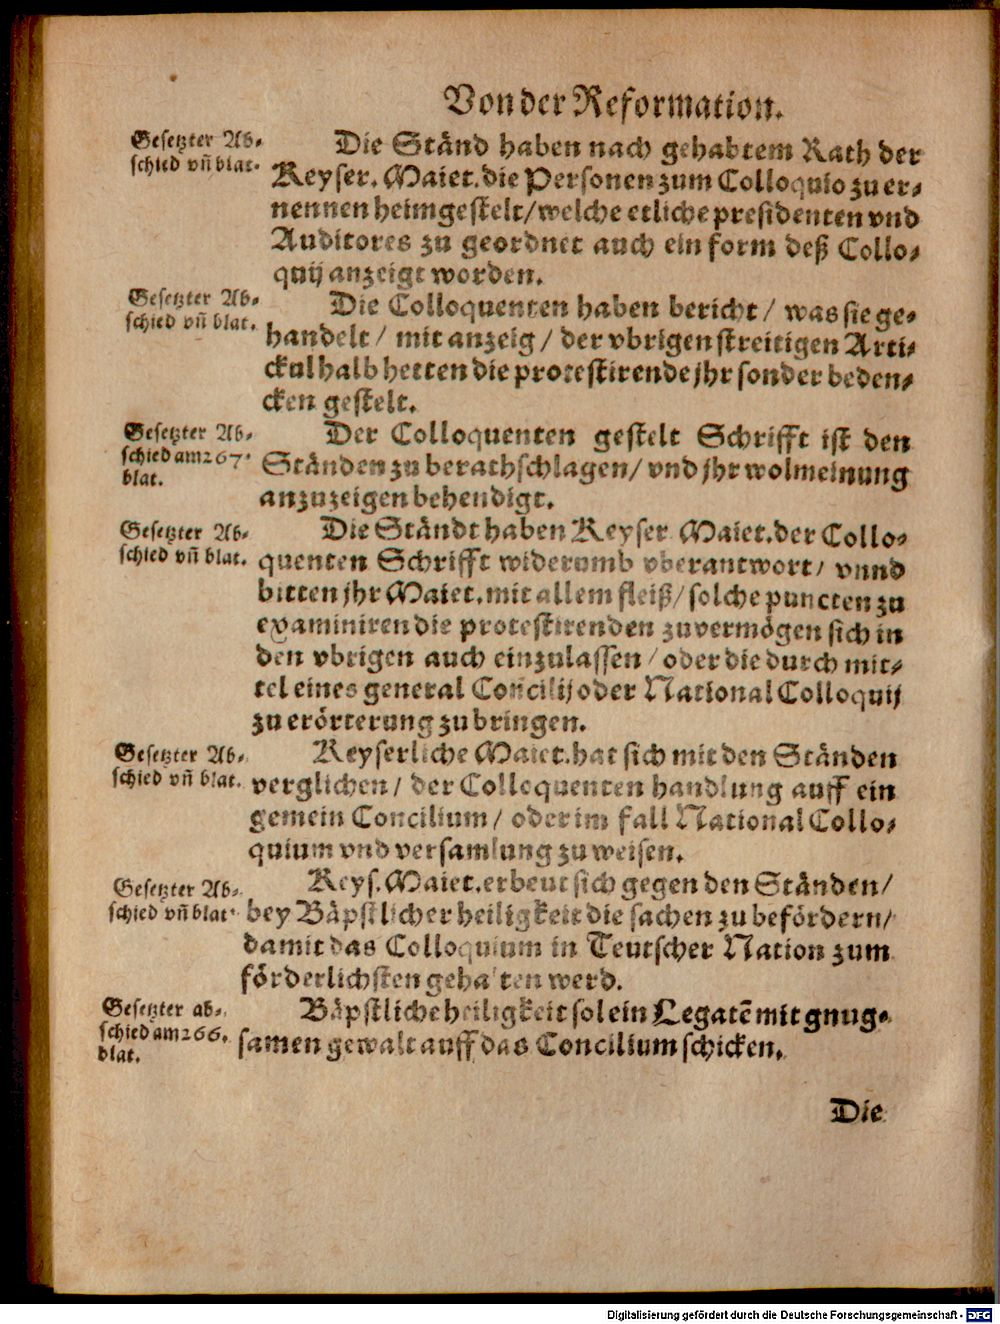 Von der Reformation.
Gesetzter Ab-
schied vñ blat.
Die Ständ haben nach gehabtem Rath der
Keyser. Maiet. die Personen zum Colloquio zu er-
nennen heimgestelt/ welche etliche presidenten vnd
Auditores zu geordnet auch ein form deß Collo-
quij anzeigt worden.
Gesetzter Ab-
schied vñ blat.
Die Colloquenten haben bericht/ was sie ge-
handelt/ mit anzeig/ der vbrigen streitigen Arti-
ckul halb hetten die protestirende jhr sonder beden-
cken gestelt.
Gesetzter Ab-
schied am 267.
blat.
Der Colloquenten gestelt Schrifft ist den
Ständen zu berathschlagen/ vnd jhr wolmeinung
anzuzeigen behendigt.
Gesetzter Ab-
schied vñ blat.
Die Ständt haben Keyser Maiet. der Collo-
quenten Schrifft widerumb vberantwort/ vnnd
bitten jhr Maiet. mit allem fleiß/ solche puncten zu
examiniren die protestirenden zuvermögen sich in
den vbrigen auch einzulassen/ oder die durch mit-
tel eines general Concilij oder National Colloquij
zu erörterung zu bringen.
Gesetzter Ab-
schied vñ blat.
Keyserliche Maiet. hat sich mit den Ständen
verglichen/ der Colloquenten handlung auff ein
gemein Concilium/ oder im fall National Collo-
quium vnd versamlung zu weisen.
Gesetzter Ab-
schied vñ blat.
Keys. Maiet. erbeut sich gegen den Ständen/
bey Bäpstlicher heiligkeit die sachen zu befördern/
damit das Colloquium in Teutscher Nation zum
förderlichsten gehalten werd.
Gesetzter ab-
schied am 266.
blat.
Bäpstliche heiligkeit sol ein Legatẽ mit gnug-
samen gewalt auff das Concilium schicken.
Die
Digitalisierung gefördert durch die Deutsche Forschungsgemeinschaft - DFG